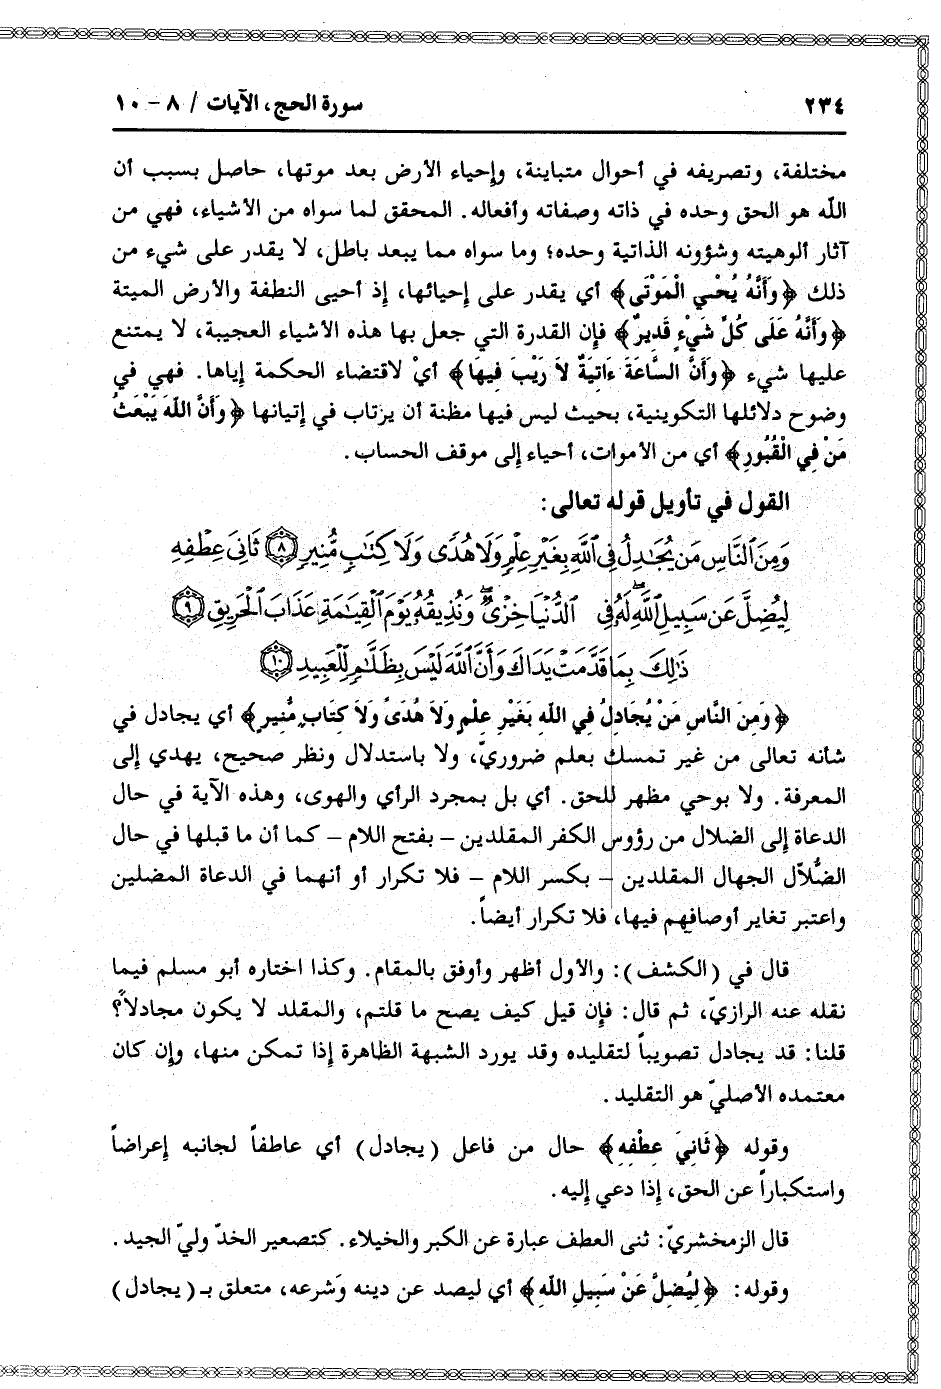 ٢٣٤ سورة الحج، الآيات / ٨ - ١٠
مختلفة، وتصريفه في أحوال متباينة، وإحياء الأرض بعد موتها، حاصل بسبب أن
الله هو الحق وحده في ذاته وصفاته وأفعاله. المحقق لما سواه من الأشياء، فهي من
آثار ألوهيته وشؤونه الذاتية وحده؛ وما سواه مما يبعد باطل، لا يقدر على شيء من
ذلك ﴿وَأَنَّهُ يُحْيِي الْمَوْتَى﴾ أي يقدر على إحيائها، إذ أحيى النطفة والأرض الميتة
﴿وَأَنَّهُ عَلَى كُلِّ شَيْءٍ قَدِيرٌ﴾ فإن القدرة التي جعل بها هذه الأشياء العجيبة، لا يمتنع
عليها شيء ﴿وَأَنَّ السَّاعَةَ ءَاتِيَةٌ لاَ رَيْبَ فِيهَا﴾ أيْ لاقتضاء الحكمة إياها. فهي في
وضوح دلائلها التكوينية، بحيث ليس فيها مظنة أن يرتاب في إتيانها ﴿وَأَنَّ اللهَ يَبْعَثُ
مَنْ فِي الْقُبُورِ﴾ أي من الأموات، أحياء إلى موقف الحساب.
القول في تأويل قوله تعالى:
وَمِنَ ٱلنَّاسِ مَن يُجَٰدِلُ فِى ٱللَّهِ بِغَيْرِ عِلْمٍ وَلَا هُدًى وَلَا كِتَٰبٍ مُّنِيرٍ ٨ ثَانِىَ عِطْفِهِۦ
لِيُضِلَّ عَن سَبِيلِ ٱللَّهِ ۖ لَهُۥ فِى ٱلدُّنْيَا خِزْىٌ ۖ وَنُذِيقُهُۥ يَوْمَ ٱلْقِيَٰمَةِ عَذَابَ ٱلْحَرِيقِ ٩
ذَٰلِكَ بِمَا قَدَّمَتْ يَدَاكَ وَأَنَّ ٱللَّهَ لَيْسَ بِظَلَّٰمٍ لِّلْعَبِيدِ ١٠
﴿وَمِنَ النَّاسِ مَنْ يُجَادِلُ فِي اللهِ بَغَيْرِ عِلْمٍ وَلاَ هُدًى وَلاَ كِتَابٍ مُنِيرٍ﴾ أي يجادل في
شأنه تعالى من غير تمسك بعلم ضروريّ، ولا باستدلال ونظر صحيح، يهدي إلى
المعرفة. ولا بوحي مظهر للحق. أي بل بمجرد الرأي والهوى، وهذه الآية في حال
الدعاة إلى الضلال من رؤوس الكفر المقلدين - بفتح اللام - كما أن ما قبلها في حال
الضُّلاّل الجهال المقلدين - بكسر اللام - فلا تكرار أو أنهما في الدعاة المضلين
واعتبر تغاير أوصافهم فيها، فلا تكرار أيضاً.
قال في (الكشف): والأول أظهر وأوفق بالمقام. وكذا اختاره أبو مسلم فيما
نقله عنه الرازيّ، ثم قال: فإن قيل كيف يصح ما قلتم، والمقلد لا يكون مجادلاً؟
قلنا: قد يجادل تصويباً لتقليده وقد يورد الشبهة الظاهرة إذا تمكن منها، وإن كان
معتمده الأصليّ هو التقليد.
وقوله ﴿ثَانِيَ عِطْفِهِ﴾ حال من فاعل (يجادل) أي عاطفاً لجانبه إعراضاً
واستكباراً عن الحق، إذا دعي إليه.
قال الزمخشريّ: ثنى العطف عبارة عن الكبر والخيلاء. كتصعير الخدّ وليّ الجيد.
وقوله: ﴿لِيُضِلَّ عَنْ سَبِيلِ اللهِ﴾ أي ليصد عن دينه وَشرعه، متعلق بـ(يجادل)